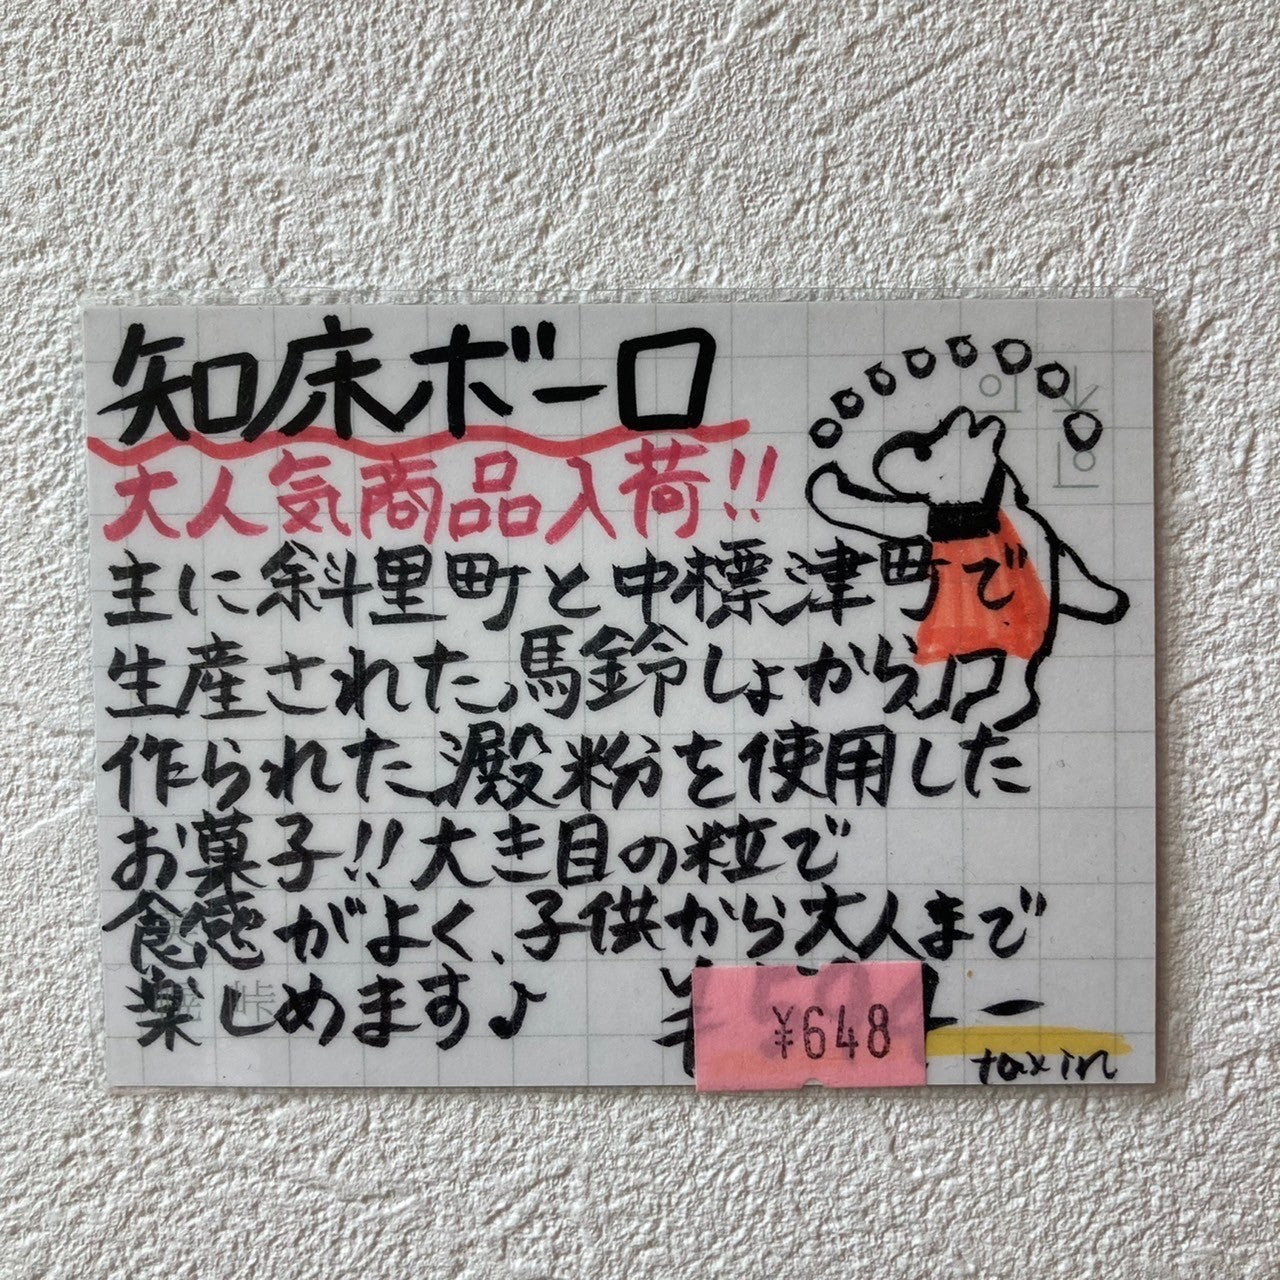 知床ボーロ
大人気商品入荷!!
主に斜里町と中標津町で
生産された馬鈴しょから
作られた澱粉を使用した
お菓子!!大き目の粒で
食感がよく、子供から大人まで
楽しめます♪
¥648
tax in